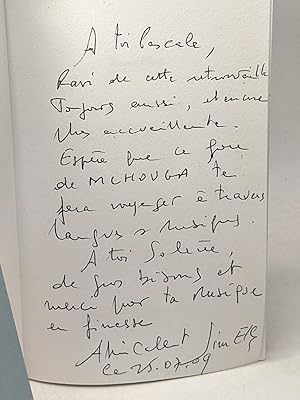 A toi Pascale,
Ravi de cette retrouvaille
Toujours aussi, et encore
plus accueillante.
Espère que ce
de MCHOUGA te
fera voyager à travers
langues & musiques.
A toi Solène,
de gros bisous et
merci pour ta musique
en finesse
le 25.07.09